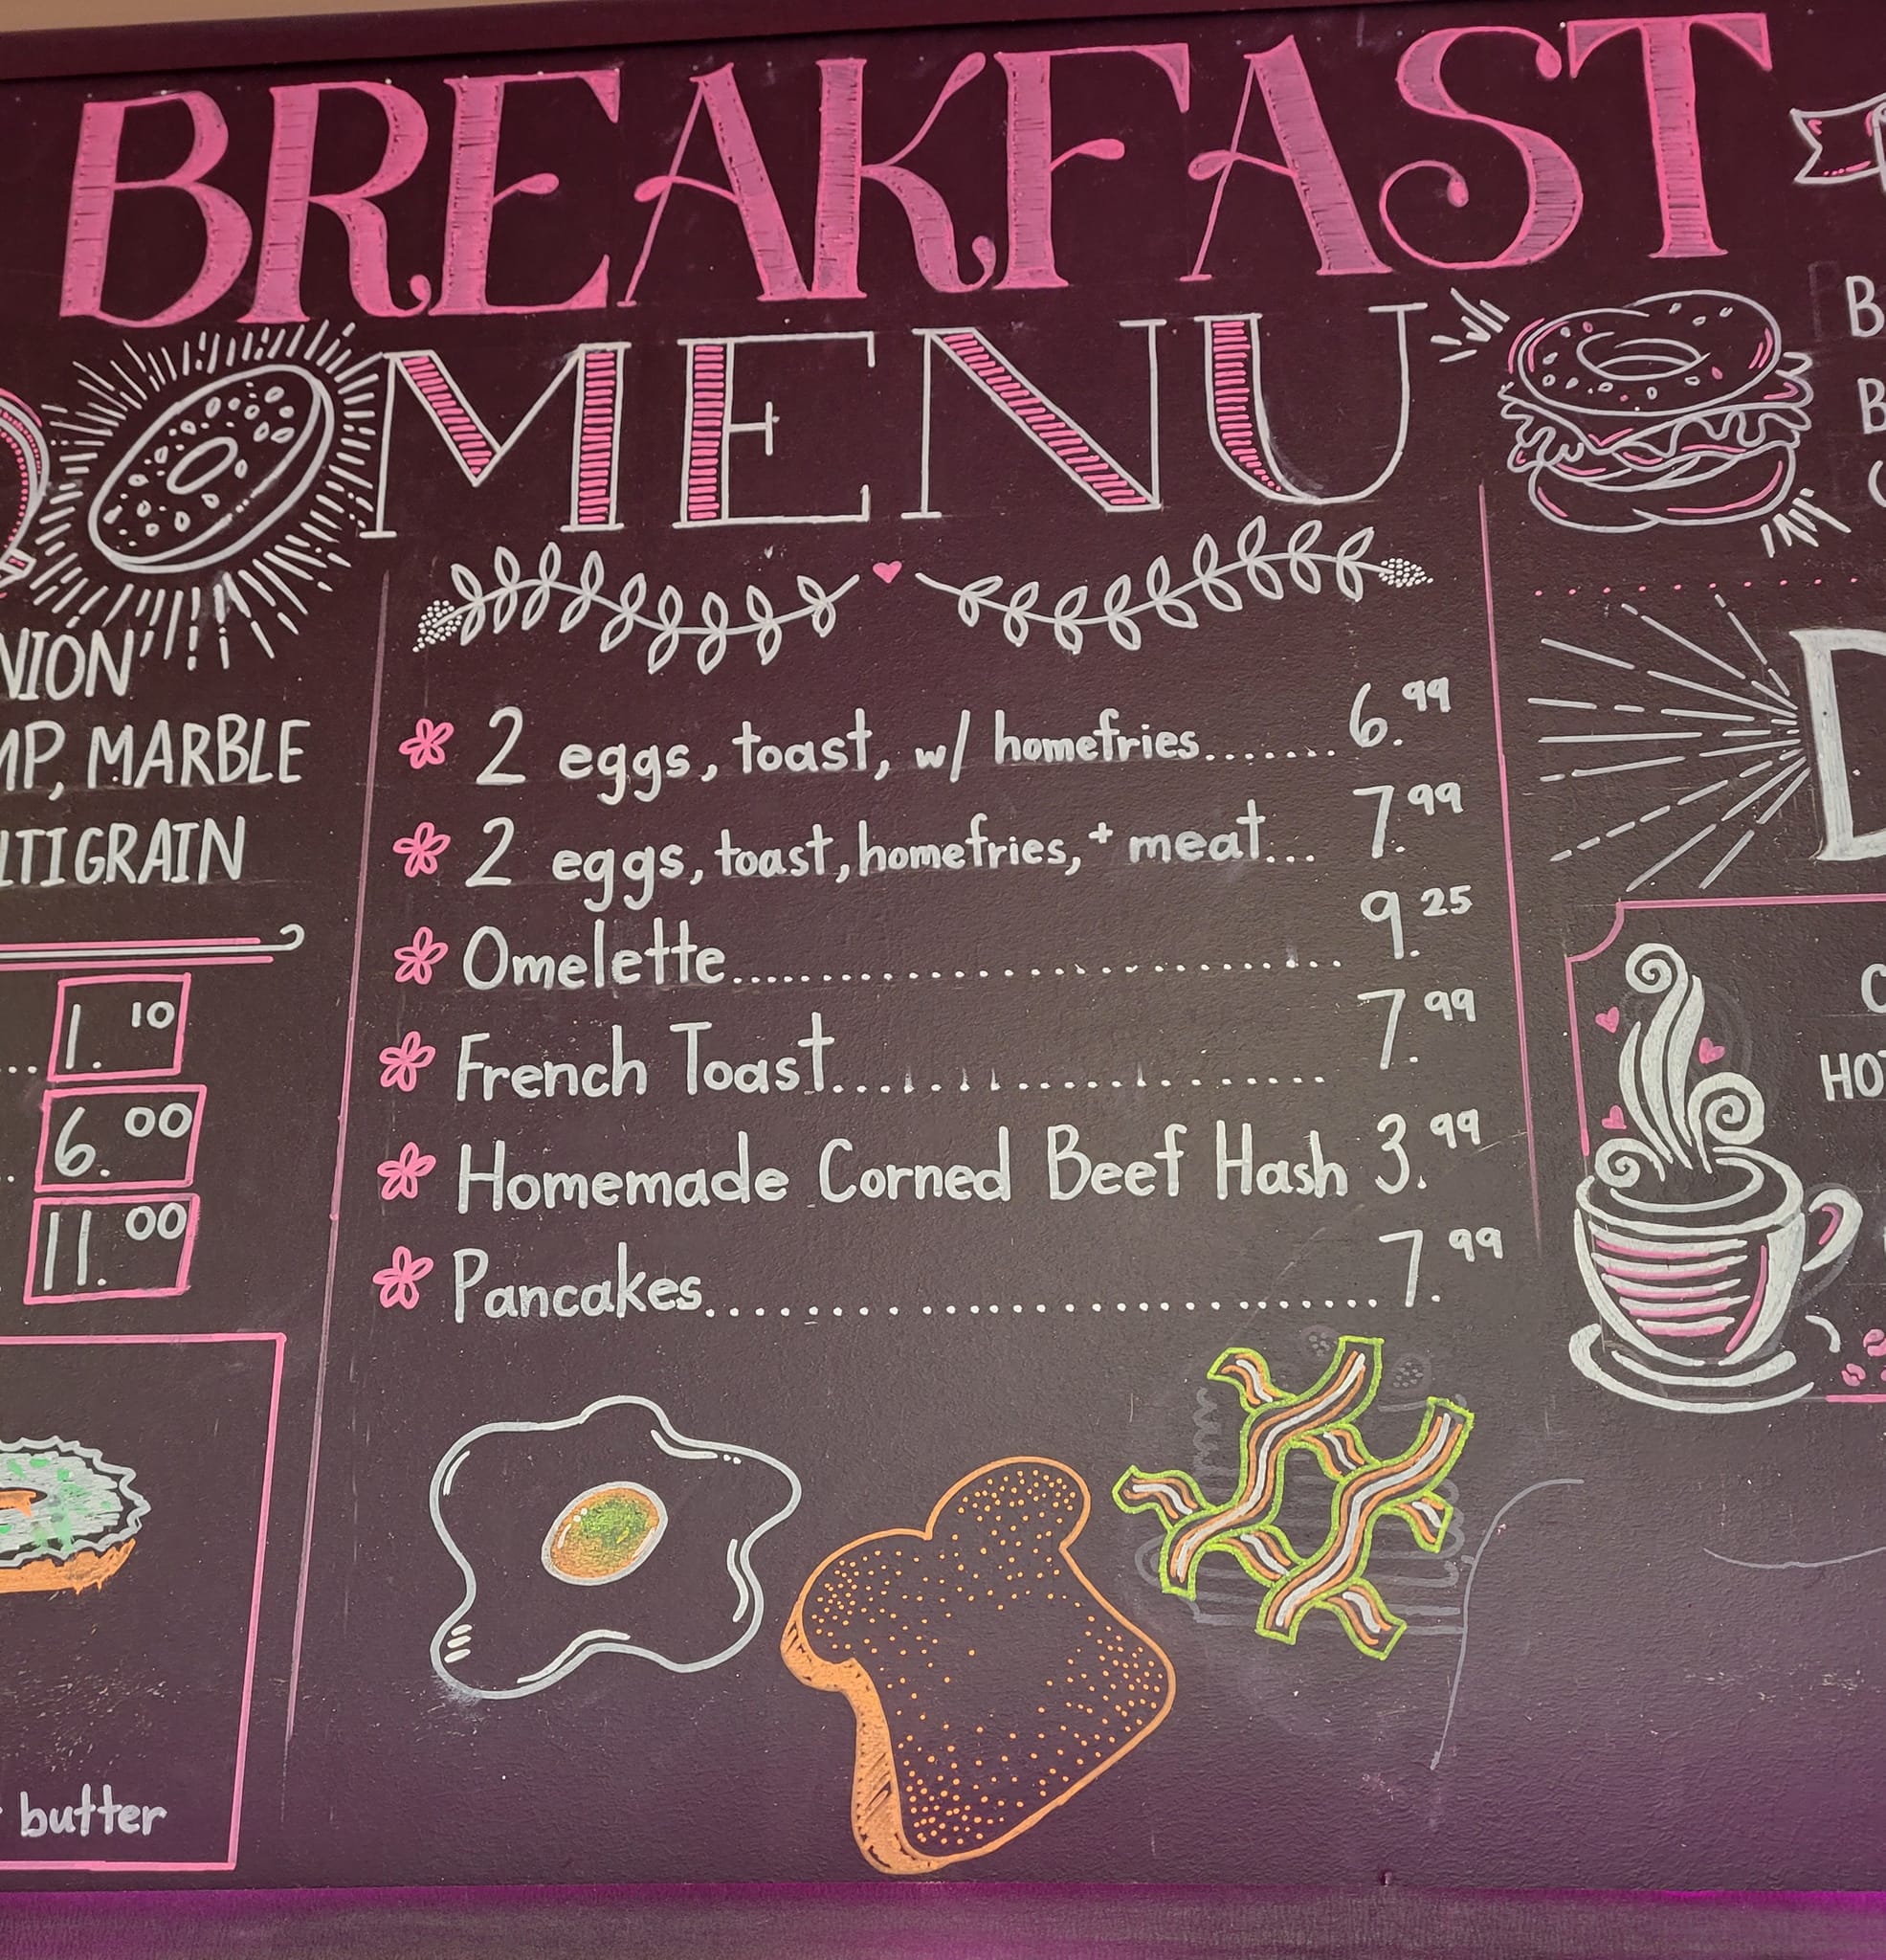 BREAKFAST
MENU
2 eggs, toast, w/ homefries....... 6.99
2 eggs, toast, homefries, + meat... 7.99
Omelette........................................ 9.25
French Toast................................ 7.99
Homemade Corned Beef Hash 3.99
Pancakes........................................ 7.99
MARBLE
1.10
6.00
11.00
butter